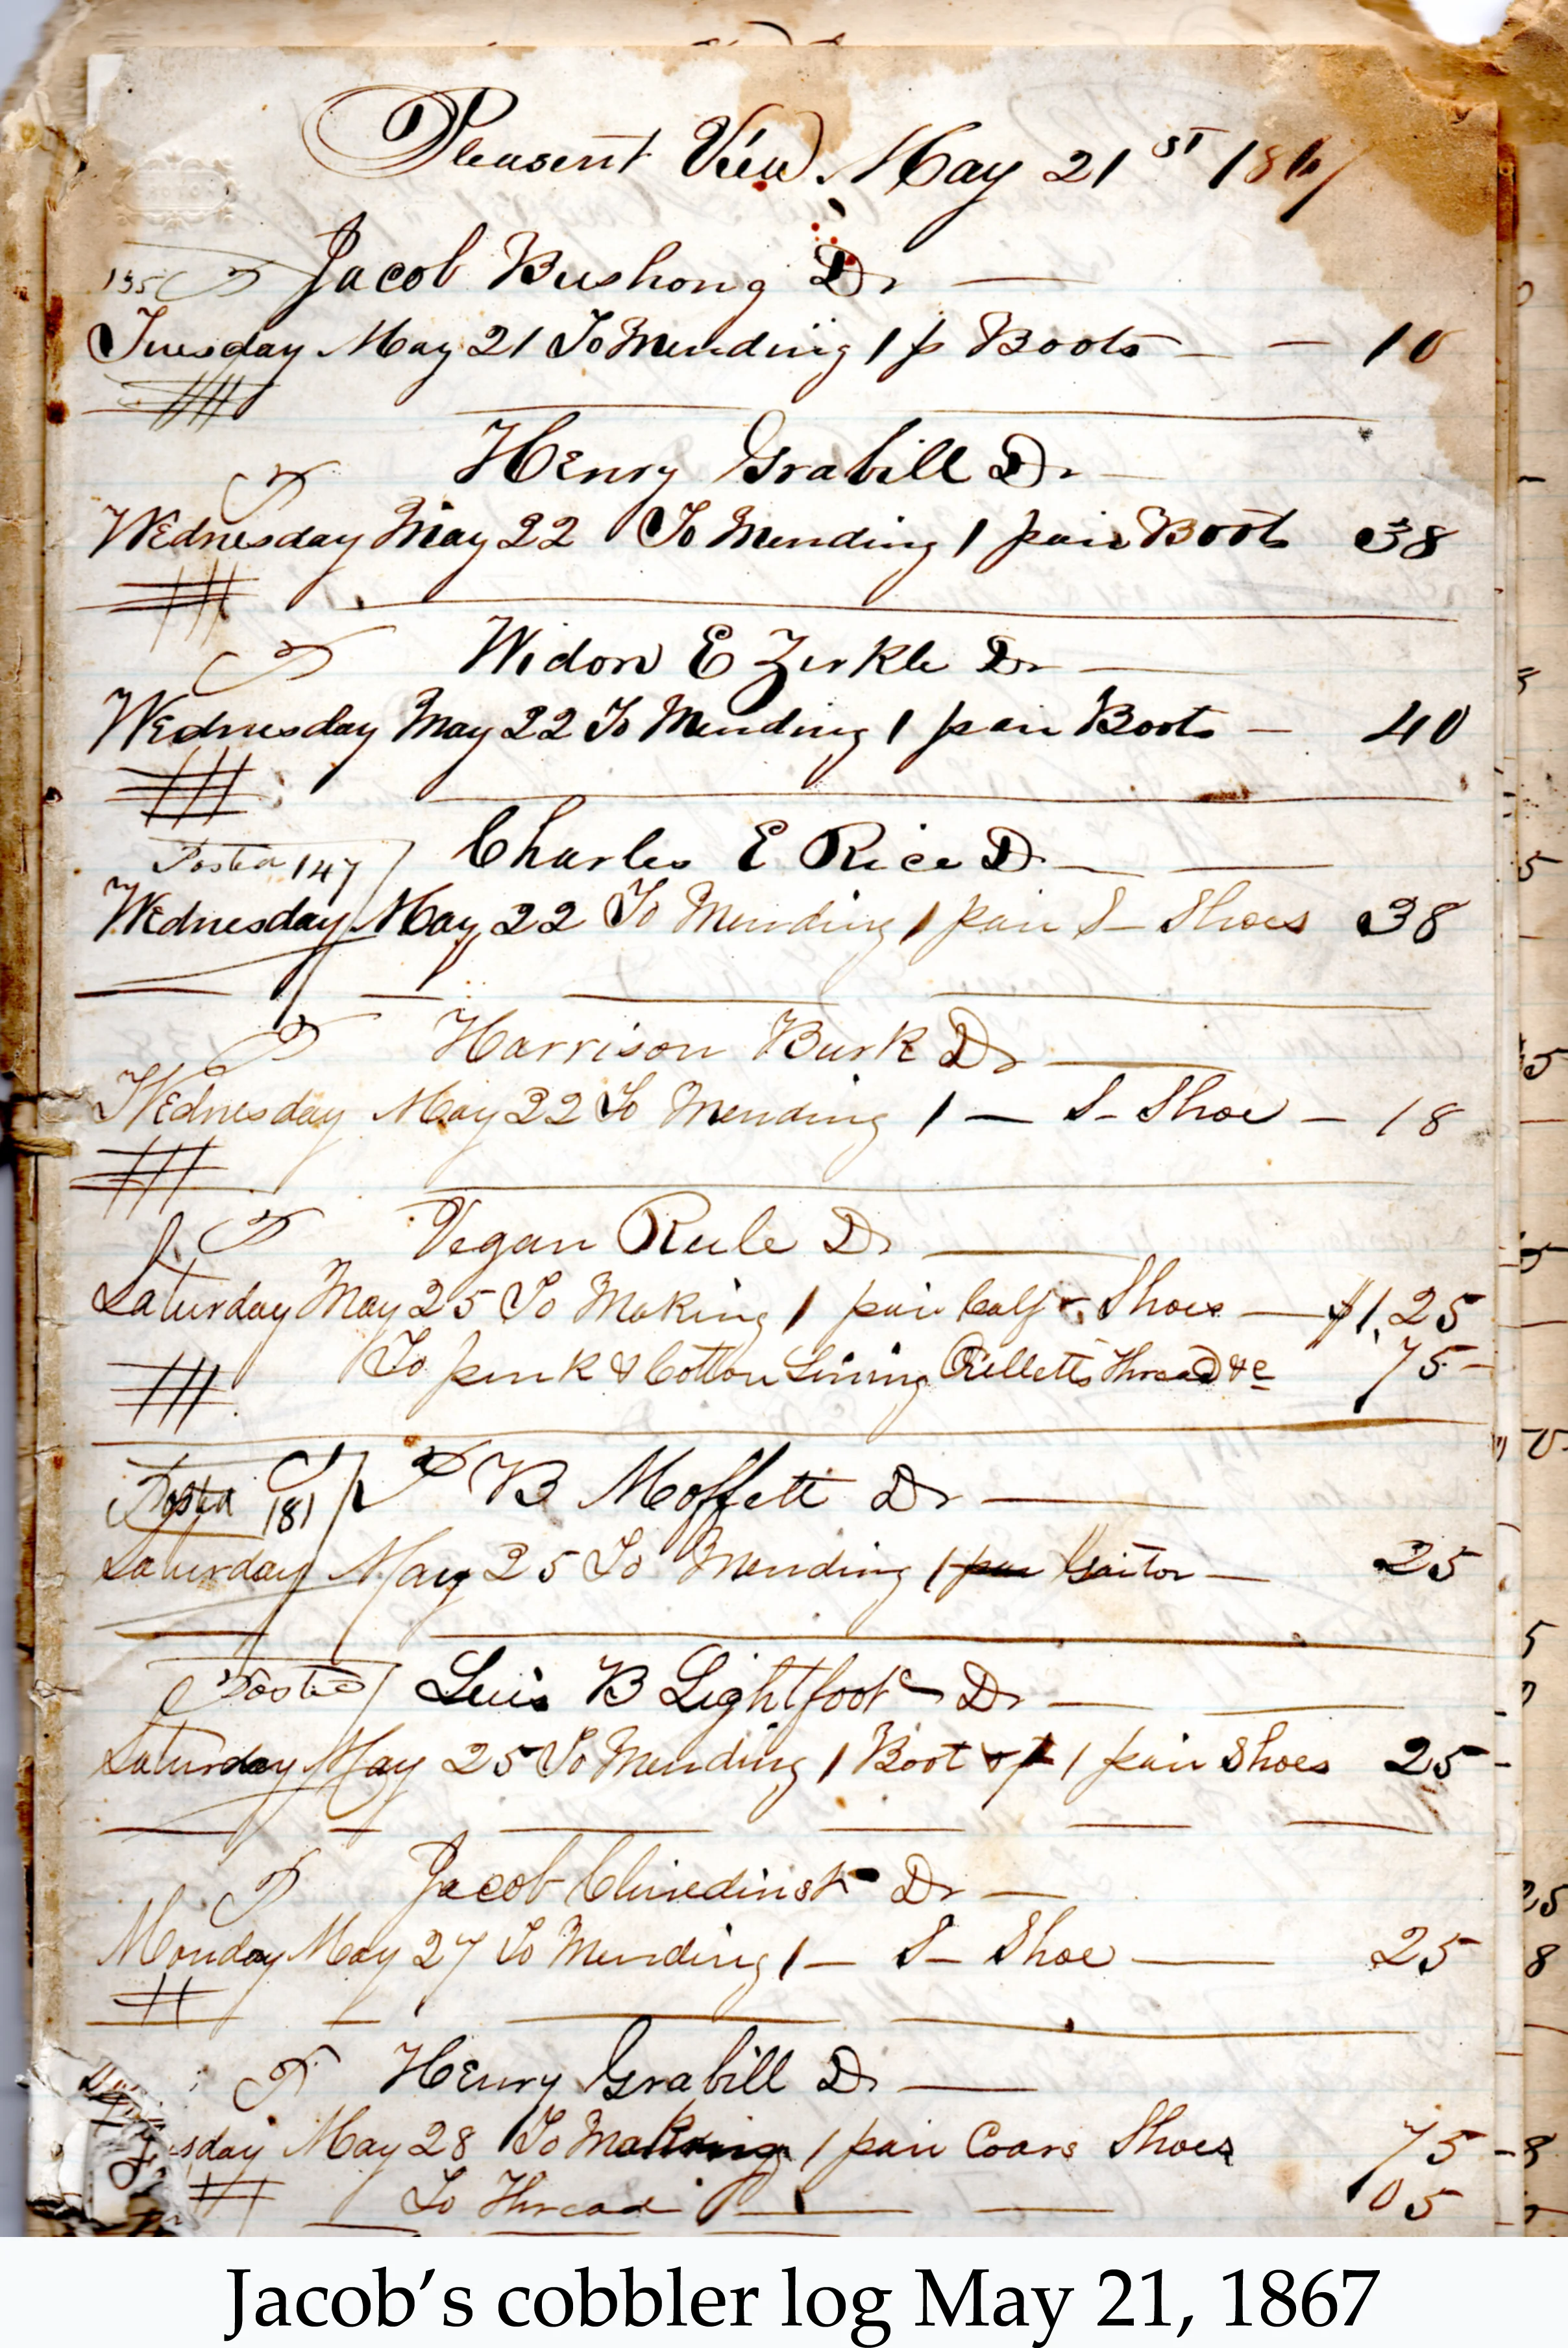 Pleasent View May 21st 1867
135 Jacob Bushong Dr
Tuesday May 21 To Mending 1 p Boots 10
Henry Grabill Dr
Wednesday May 22 To Mending 1 pair Boots 38
Widow E Zirkle Dr
Wednesday May 22 To Mending 1 pair Boots 40
Posted 147 Charles E Rice Dr
Wednesday May 22 To Mending 1 pair S- Shoes 38
Harrison Burk Dr
Wednesday May 22 To Mending 1 — S- Shoe 18
Vegan Rule Dr
Saturday May 25 To Making 1 pair Calf Shoes $1,25
To & Cotton Lining Thread &c 75
Posted 181 B Moffett Dr
Saturday May 25 To Mending 1 Gaitor 25
Posted B Lightfoot Dr
Saturday May 25 To Mending 1 Boot & 1 pair Shoes 25
Jacob Dr
Monday May 27 To Mending 1 — S- Shoe 25
Henry Grabill Dr
sday May 28 To Making 1 pair Coars Shoes 75
To Thread 05
Jacob's cobbler log May 21, 1867